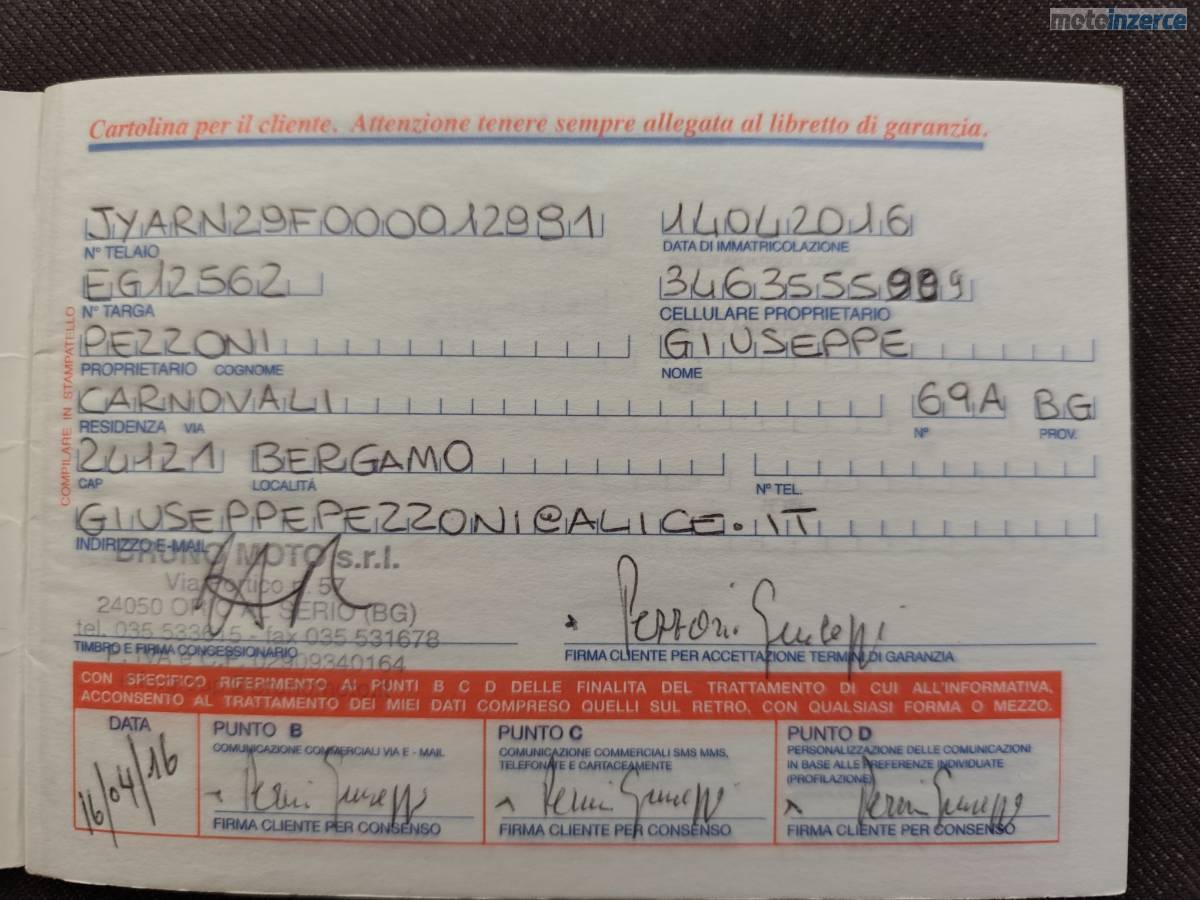 motoinzerce
Cartolina per il cliente. Attenzione tenere sempre allegata al libretto di garanzia.
JYARN29F000012991 14042016
N° TELAIO DATA DI IMMATRICOLAZIONE
EG12562 3463555999
N° TARGA CELLULARE PROPRIETARIO
PEZZONI GIUSEPPE
PROPRIETARIO COGNOME NOME
CARNOVALI 69A BG
RESIDENZA VIA N° PROV.
24121 BERGAMO
CAP LOCALITÁ N° TEL.
GIUSEPPEPEZZONI@ALICE.IT
INDIRIZZO E-MAIL
COMPILARE IN STAMPATELLO
BRUNO MOTO s.r.l.
Via 57
24050 SERIO (BG)
tel. 035 - fax 035 531678
02909340164
Pezzoni Giuseppe
TIMBRO E FIRMA CONCESSIONARIO FIRMA CLIENTE PER ACCETTAZIONE TERMINI DI GARANZIA
CON SPECIFICO RIFERIMENTO AI PUNTI B C D DELLE FINALITA DEL TRATTAMENTO DI CUI ALL'INFORMATIVA,
ACCONSENTO AL TRATTAMENTO DEI MIEI DATI COMPRESO QUELLI SUL RETRO, CON QUALSIASI FORMA O MEZZO.
DATA
16/04/16
PUNTO B
COMUNICAZIONE COMMERCIALI VIA E - MAIL
FIRMA CLIENTE PER CONSENSO
PUNTO C
COMUNICAZIONE COMMERCIALI SMS MMS,
TELEFONATE E CARTACEAMENTE
FIRMA CLIENTE PER CONSENSO
PUNTO D
PERSONALIZZAZIONE DELLE COMUNICAZIONI
IN BASE ALLE PREFERENZE INDIVIDUATE
(PROFILAZIONE)
FIRMA CLIENTE PER CONSENSO